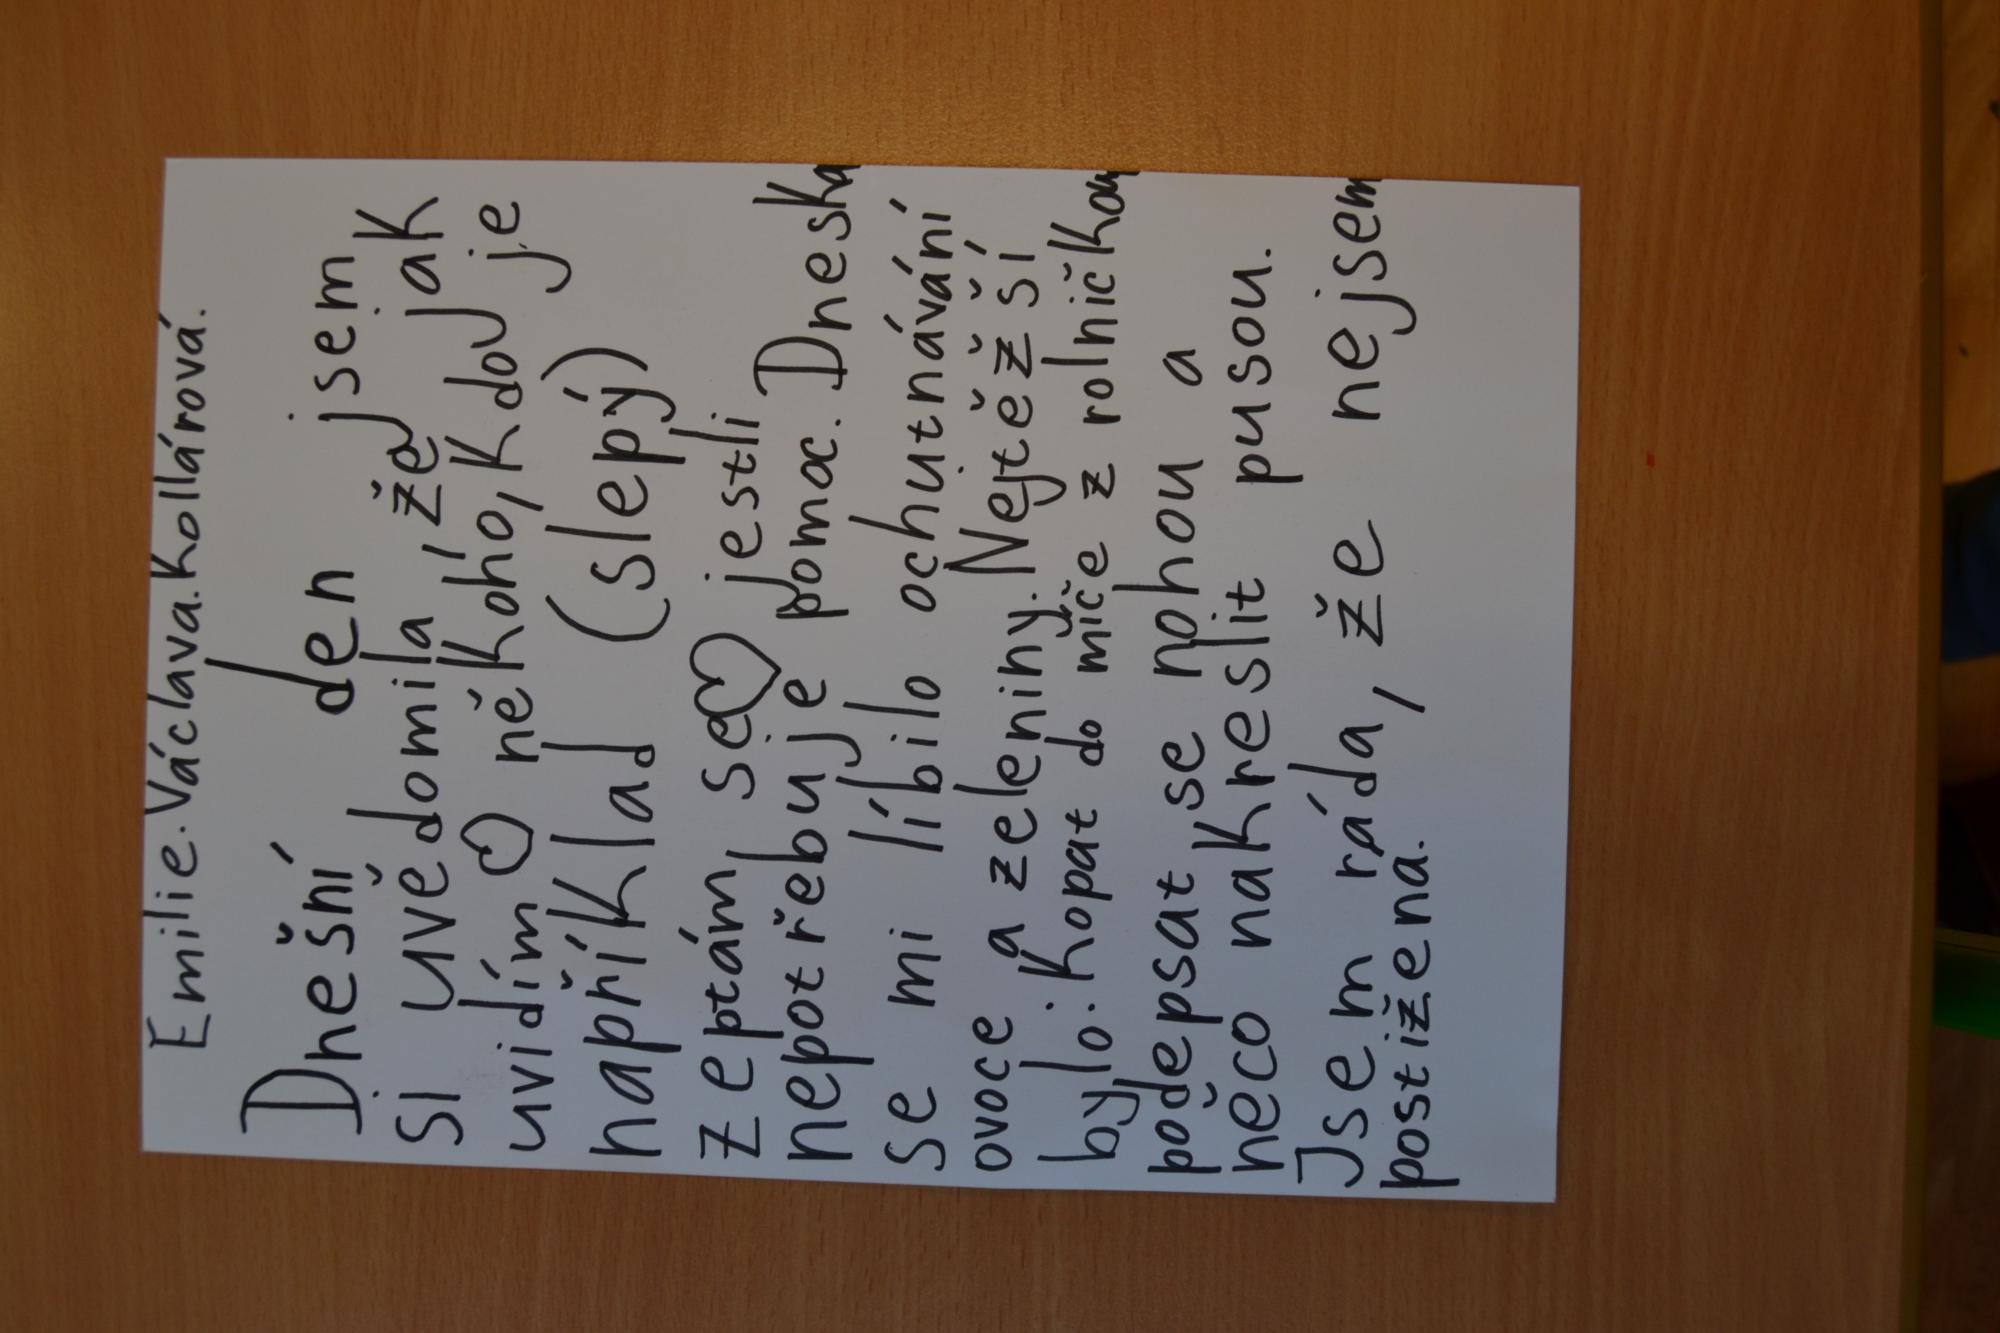 Emilie.Václava.Kollárová.
Dnešní den jsem
si uvědomila, že jak
uvidím někoho, kdo je
například (slepý)
zeptám se jestli
nepotřebuje pomoc. Dneska
se mi líbilo ochutnávání
ovoce a zeleniny. Nejtěžší
bylo: Kopat do míče z rolničkou
poděpsat se nohou a
něco nakreslit pusou.
Jsem ráda, že nejsem
postižena.